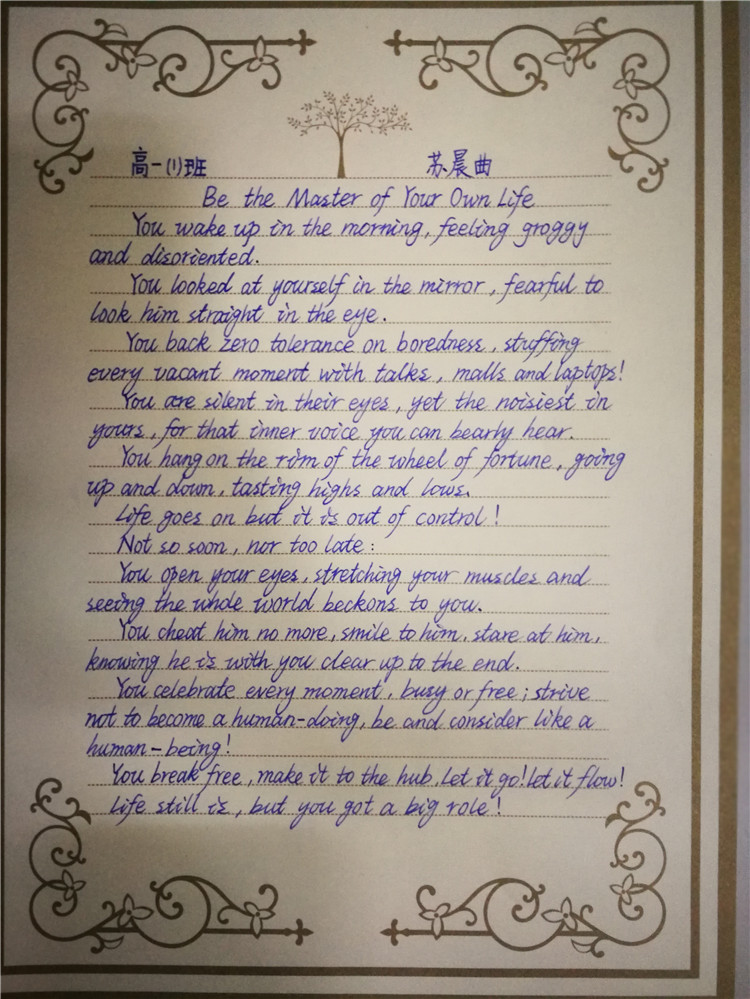 高一(1)班 苏晨曲
Be the Master of Your Own Life
You wake up in the morning, feeling groggy
and disoriented.
You looked at yourself in the mirror, fearful to
look him straight in the eye.
You back zero tolerance on boredness, stuffing
every vacant moment with talks, malls and laptops!
You are silent in their eyes, yet the noisiest in
yours, for that inner voice you can bearly hear.
You hang on the rim of the wheel of fortune, going
up and down, tasting highs and lows.
Life goes on but it is out of control!
Not so soon, nor too late:
You open your eyes, stretching your muscles and
seeing the whole world beckons to you.
You cheat him no more, smile to him, stare at him,
knowing he is with you clear up to the end.
You celebrate every moment, busy or free; strive
not to become a human-doing, be and consider like a
human-being!
You break free, make it to the hub. Let it go! Let it flow!
Life still is, but you got a big role!